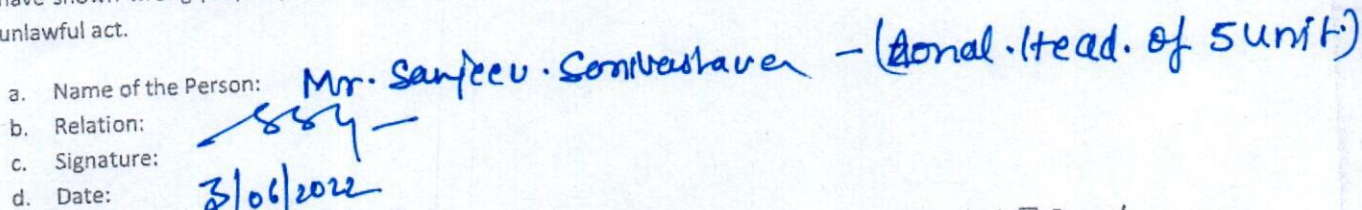 unlawful act.
a. Name of the Person: Mr. Sanjeev. Sonivastaver - (Zonal. Head. of 5 unit.)
b. Relation:
c. Signature:
d. Date: 3/06/2022